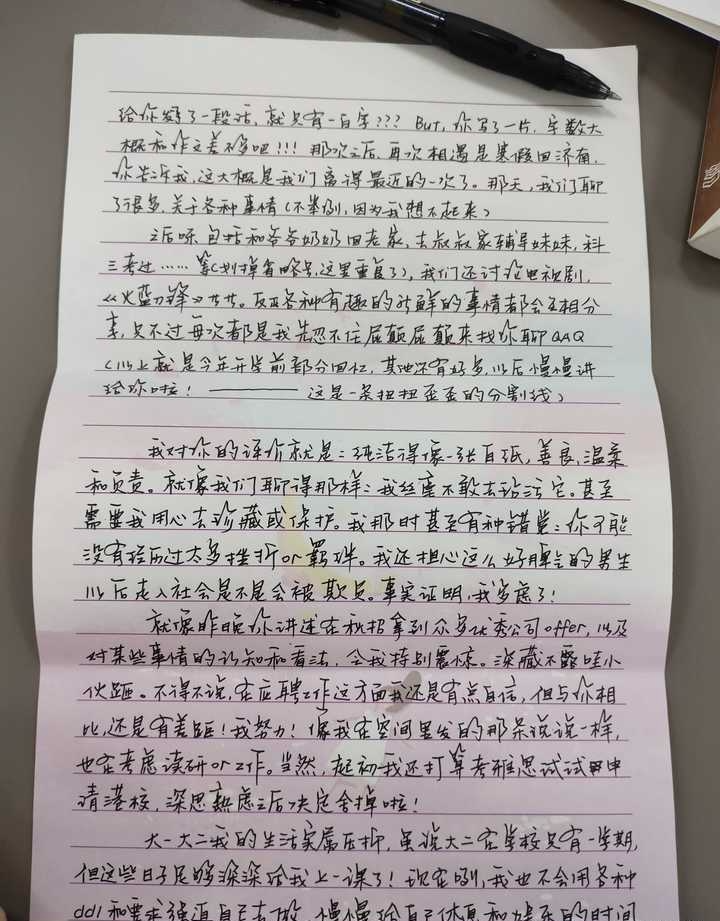 给你发了一段话，就只有一百字??? But，你写了一片，字数大
概和作文差不多吧!!! 那次之后，再次相遇是寒假回济南，
你告诉我，这大概是我们离得最近的一次了。那天，我们聊
了很多，关于各种事情（不举例，因为我想不起来）
之后呀 包括和爷爷奶奶回老家，去叔叔家辅导妹妹，科
三考过……等（划掉省略号，这里重复了），我们还讨论电视剧，
《火蓝刀锋》。反正各种有趣的新鲜的事情都会互相分
享，只不过每次都是我先忍不住屁颠屁颠来找你聊QAQ
（以上就是今年开学前部分回忆，其他还有好多，以后慢慢讲
给你啦！ ———— 这是一条扭扭歪歪的分割线）
我对你的评价就是：纯洁得像一张白纸，善良，温柔
和负责。就像我们聊得那样：我丝毫不敢去玷污它。甚至
需要我用心去珍藏或保护。我那时甚至有种错觉：你可能
没有经历过太多挫折or羁绊。我还担心这么好脾气的男生
以后走入社会是不是会被欺负。事实证明，我多虑了！
就像昨晚你讲述在秋招拿到众多优秀公司offer，以及
对某些事情的认知和看法，令我特别震惊。深藏不露哇小
伙砸。不得不说，在应聘工作这方面我还是有点自信，但与你相
比，还是有差距！我努力！像我在空间里发的那条说说一样，
也在考虑读研or工作。当然，起初我还打算考雅思试试申
请港校，深思熟虑之后决定舍掉啦！
大一大二我的生活实属压抑，虽说大二在学校只有一学期，
但这些日子足够深深给我上一课了！现在咧，我也不会用各种
ddl和要求强迫自己去做，慢慢给自己休息和娱乐的时间